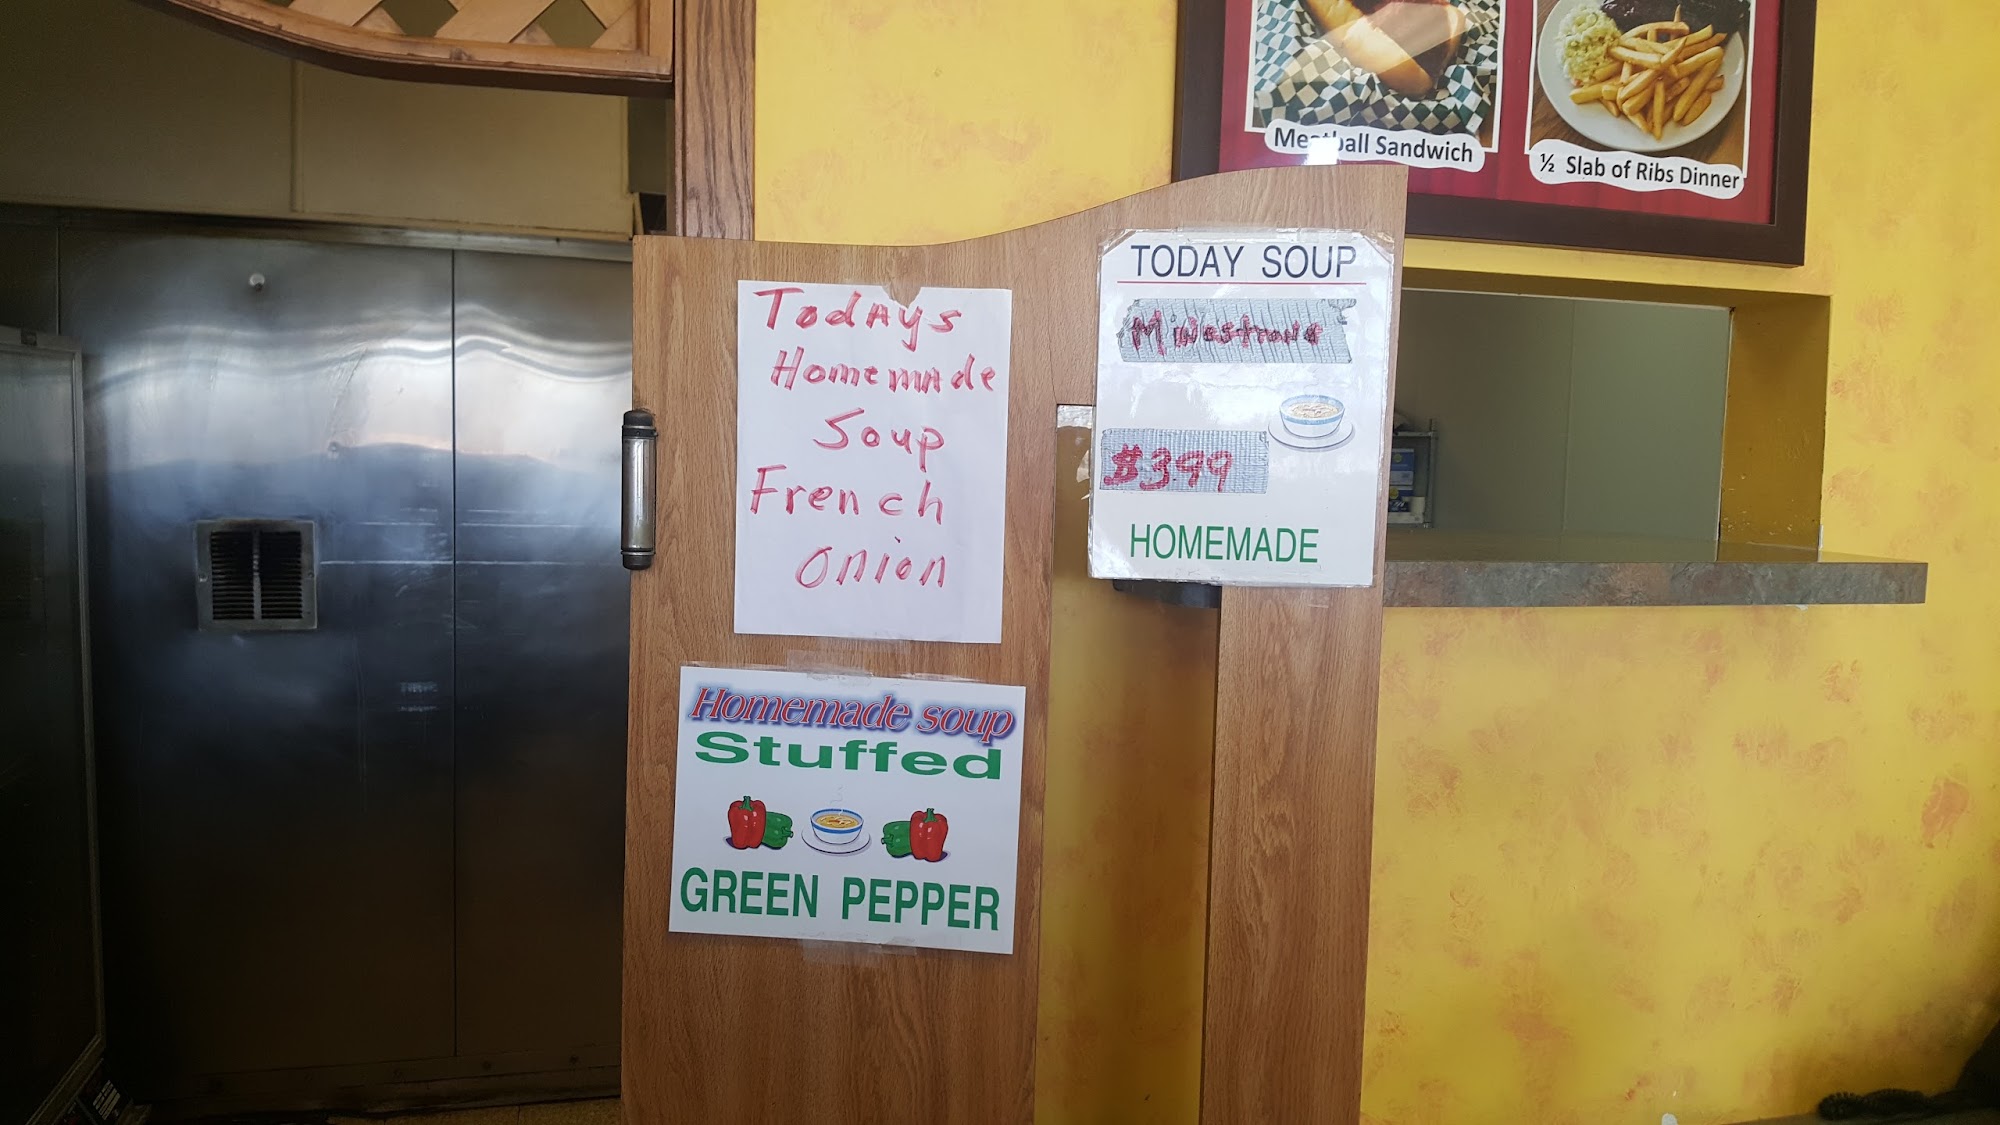 Meatball Sandwich
½ Slab of Ribs Dinner
TodAys
Homemade
Soup
French
onion
TODAY SOUP
Minestrone
$3.99
HOMEMADE
Homemade soup
Stuffed
GREEN PEPPER